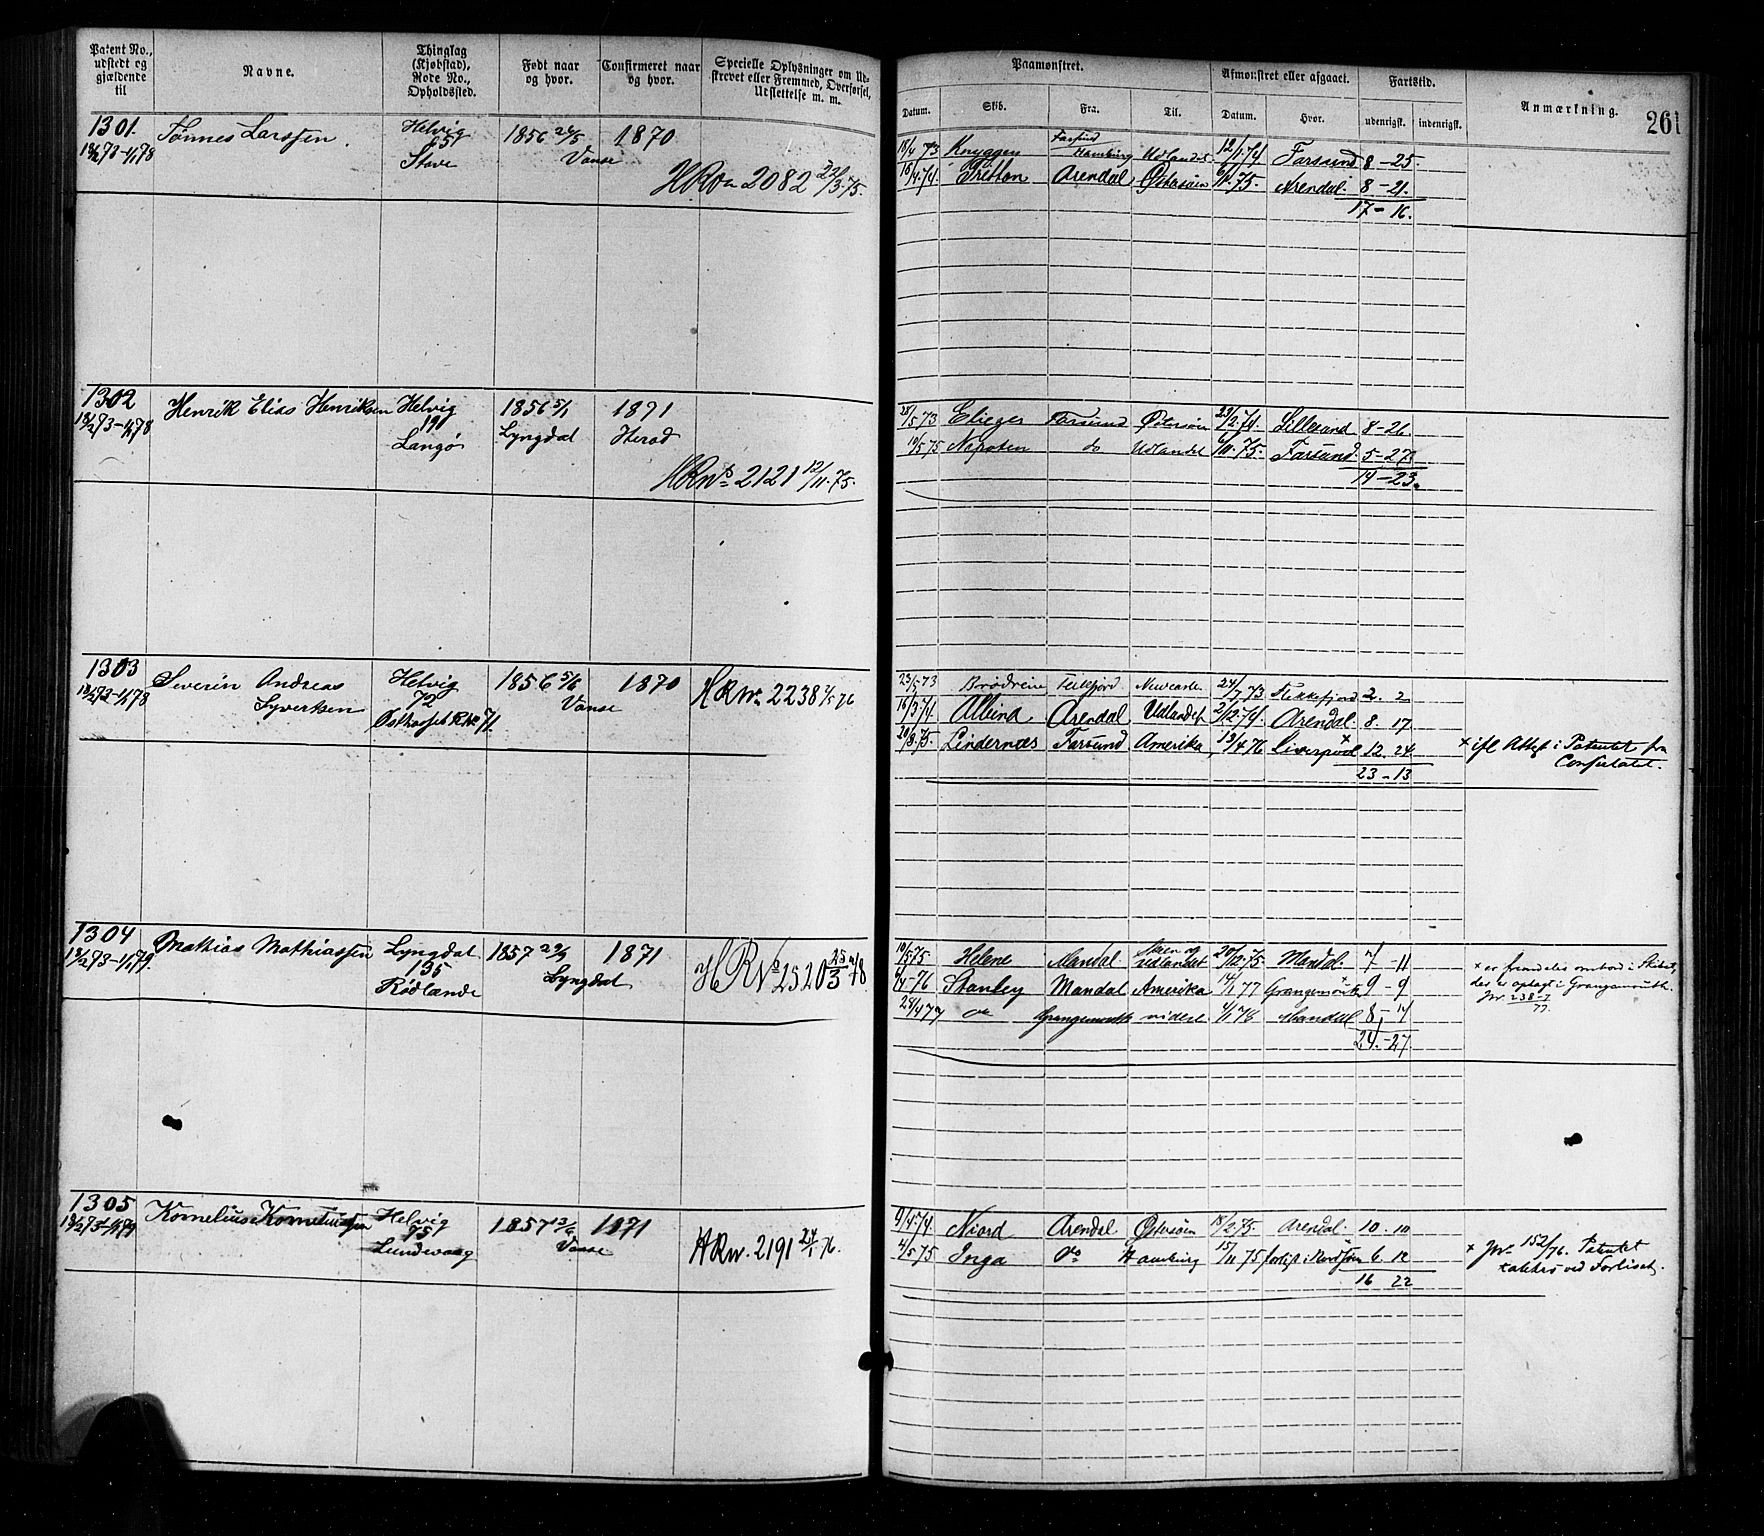 Patent No., udstedt og gjældende til
Navne.
Thinglag (Kjøbstad), Rode No., Opholdssted.
Født naar og hvor.
Confirmeret naar og hvor.
Specielle Oplysninger om Udskrevet eller Fremmed, Overførsel, Udslettelse m. m.
Paamønstret.
Afmønstret eller afgaaet.
Fartstid.
Anmærkning.
261
Datum. Skib. Fra. Til. Datum. Hvor. udenrigsk. indenrigsk.
1301. Tønnes Larssen. Helvig 1856 24/5 1870
18/273-1/178 Stave Vanse
HRNo 2082 22/3.75.
18/4 73 Knyggen Farsund Hamburg Udlandet 12/1.74 Farsund 8-25.
10/4.74. Arendal Østersøen 9/1.75. Arendal 8-21.
17-16.
1302 Henrik Elias Henriksen Helvig 1856 5/1 1871
18/273-1/178 191 Lyngdal Herad
Langø
HRNo 2121 12/11.75.
28/5.73 Elieger Farsund Østersøen 23/2.74. Lillesand 8-26
10/5.75 Napoten do Udlandet 6/10.75. Farsund 5-27.
14-23.
1303 Severin Andreas Helvig 1856 5/6 1870 HRNo 2238 2/5 76
18/273-1/178 Syvertsen 72 Vanse
23/5 73 Brødrene Newcastle 24/7 73 Flekkefjord 2. 2
16/3.74. Albind Arendal Udlandet 2/12.74. Arendal. 8. 17
20/8.75. Lindernæs Farsund Amerika 19/4 76 Liverpool x 12. 24
x ifl Attest i Patentet fra
Consulatet.
23-13
1304 Mathias Mathiassen Lyngdal 1857 29/7 1871 HRNo 2520 25/3 78
18/273-1/179. 135 Lyngdal
Rødlande
10/5.75 Helene Mandal Skien og udlandet 20/12.75 Mandal. 7-11
9/4-76 Stanley Mandal Amerika 14/1 77 Grangemouth x 9-9
28/4 77 do Grangemouth videre 4/1 78 Mandal 8-7
24.-27
x er fremdeles ombord i Skibet,
der er oplagt i Grangemouth.
Jnr 238-7/77.
1305 Kornelius Korneliussen Helvig 1857 12/6 1871
18/273-1/179 75 Vanse
Lundevaag
HRNo. 2191 24/1 76.
9/4.74. Niord Arendal Østersøen 18/2.75. Arendal. 10. 10
4/5.75 Inga do Hamburg 15/11 75 forlist i Nordsøen 6. 12
16 22
x Jnr 152/76. Patentet
tabtes ved Forliset.